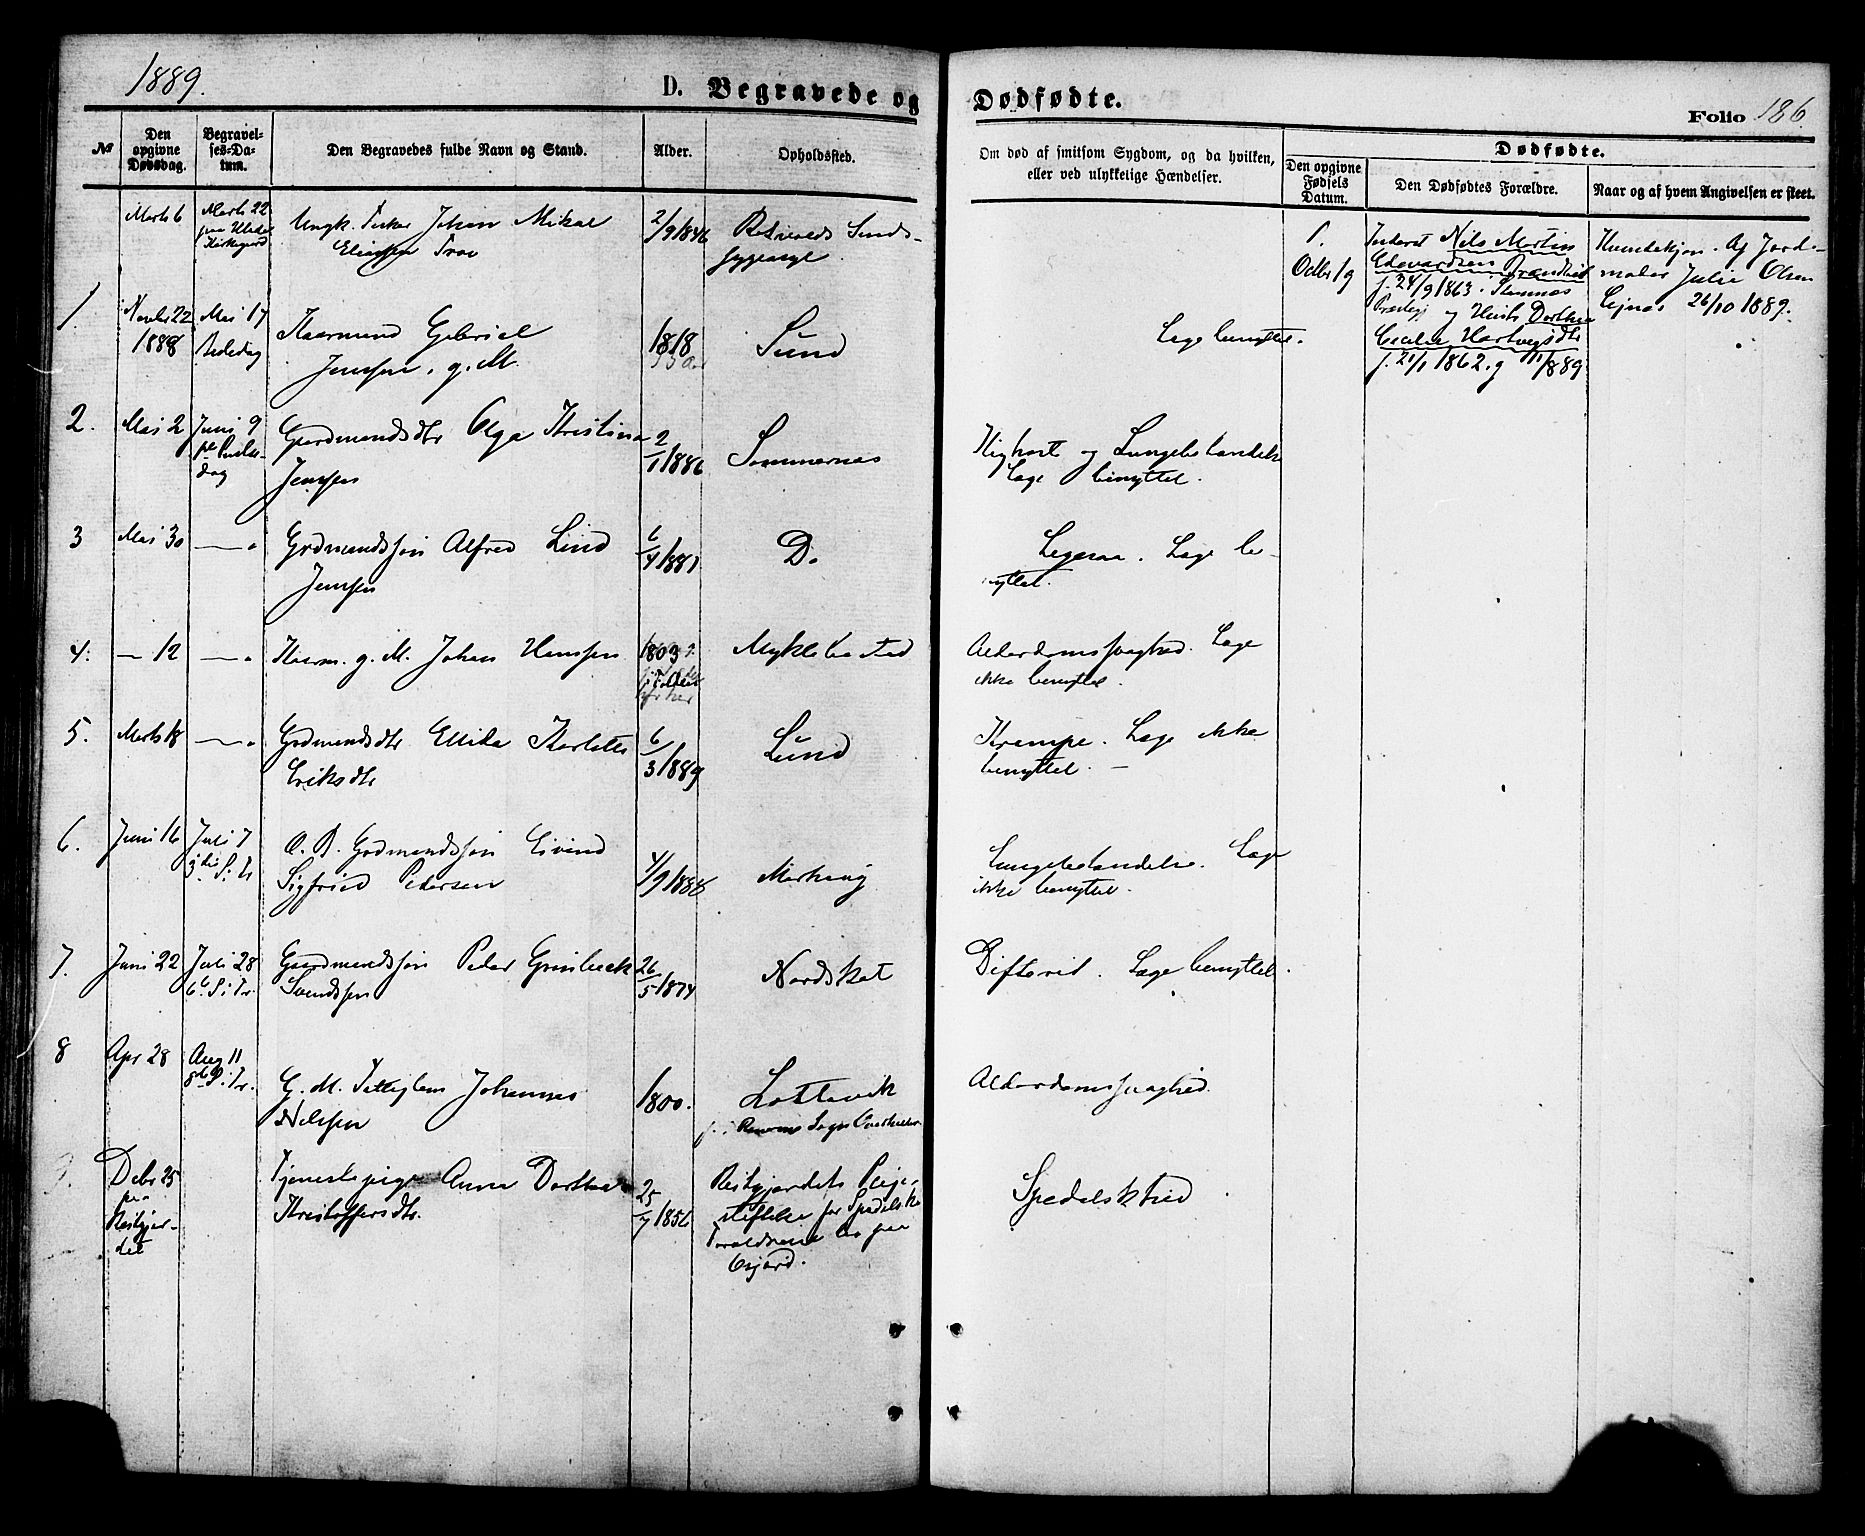 1889.
D. Begravede og
Dødfødte.
Folio 186.
№
Den opgivne Dødsdag.
Begravelses-Datum.
Den Begravedes fulde Navn og Stand.
Alder.
Opholdssted.
Om død af smitsom Sygdom, og da hvilken,
eller ved ulykkelige Hændelser.
Dødfødte.
Den opgivne Fødsels Datum.
Den Dødfødtes Forældre.
Naar og af hvem Angivelsen er skeet.
Marts 6
Marts 22
Kirkegaard
Ungk. Johan Mikal
2/9 1846
Sinds-
sygeasyl
1.
Octbr 19
Inderst Nils Martin
Edevardsen
f. 24/9 1863.
og Hustr Dorthea
Hartvigsdtr
f. 21/1 1862. g 11/8 89.
Kvindekjøn. Af Jord-
moder Julie Olsen
26/10 1889.
1.
Novbr 22
1888
Mai 17
Bededag
Kaarmand Gabriel
Jenssen. g. M.
1818
Sund
Læge benyttet.
2.
Mai 2
Juni 9
Pindse-
dag
Gaardmandsdtr Olga Kristina
Jenssen
2/1 1886
Sommernes
Kighost og Lungebetændelse
Læge benyttet.
3
Mai 30
—
Grdmandssøn Alfred Lind
Jenssen
6/4 1881
D.
Læge be-
nyttet.
4.
— 12
—
Kaarm. g. M. Johan Hanssen
1803
Myklebostad
Alderdomssvaghed. Læge
ikke benyttet.
5.
Marts 18
—
Grdmandsdtr Ellida
Eriksdtr
6/3 1889
Lund
Krampe. Læge ikke
benyttet. —
6.
Juni 16
Juli 7
3die S. Tr
Grdmandssøn Eivind
Sigfried Pedersen
4/9 1888
Lungebetændelse. Læge
ikke benyttet.
7.
Juni 22
Juli 28
6te S. Tr.
Gaardmandssøn Peder Grønbeck
Svendssen
26/5 1874
Nordskot
Difterit. Læge benyttet.
8
Apr 28
Aug 11
8de S. Tr.
G. M. Johannes
Nilssen
1800.
Sogn
Alderdomssvaghed.
9.
Debr 25
paa
Reitgjær-
det
Tjenestepige Anna Dorthea
Kristoffersdtr.
25/7 1856
Reitgjerdets Pleje-
stiftelse for Spedalske
Forældrene bo paa
Spedalskhed